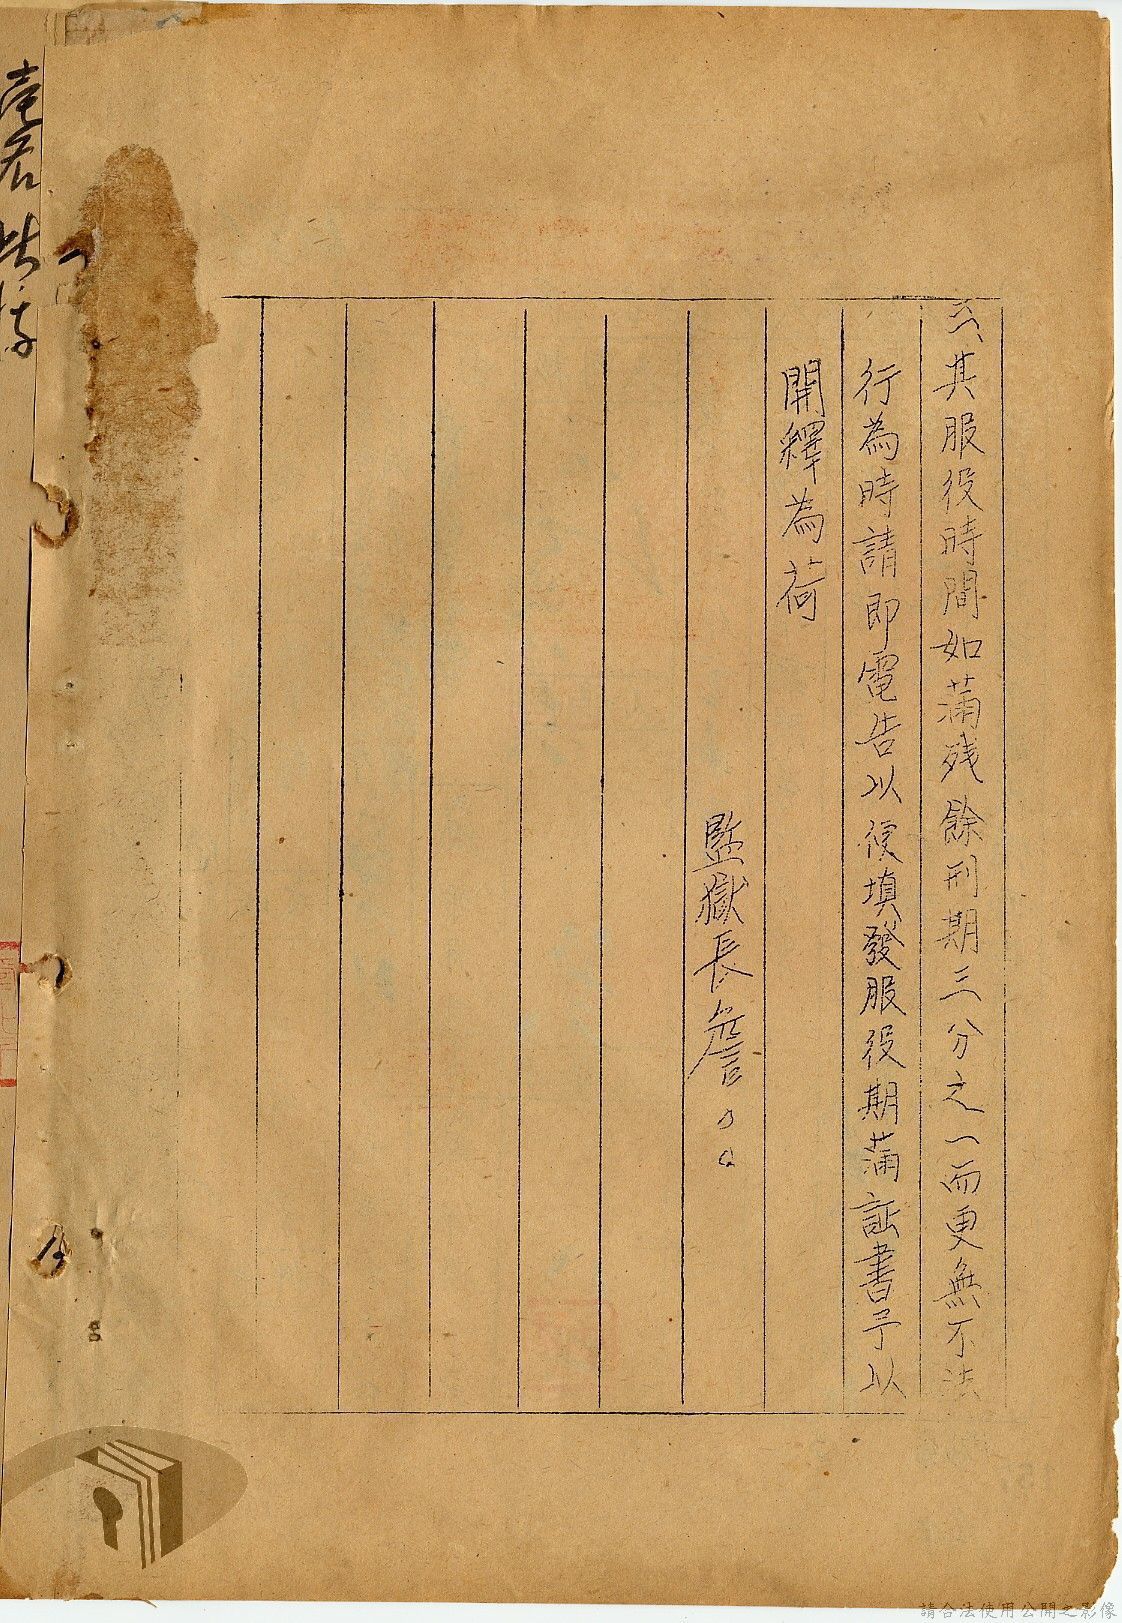 六、其服役時間如滿残餘刑期三分之一而更無不法
行為時請即電告以便填發服役期滿証書予以
開釋為荷
監獄長詹〇〇
請合法使用公開之影像